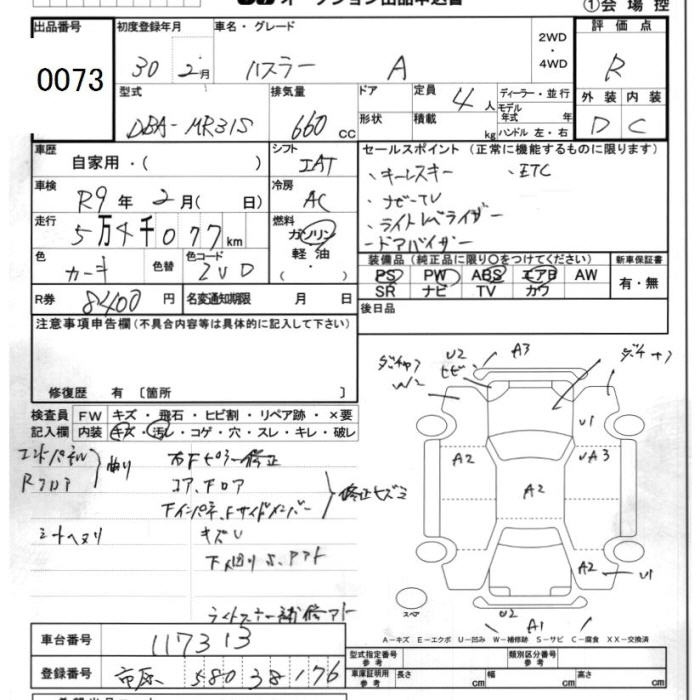 ①会場控
出品番号 初度登録年月 車名・グレード 2WD ・ 4WD 評価点
0073 30 2月 ハスラー A R
型式 排気量 ドア 定員 ディーラー・並行 外装 内装
DBA-MR31S 660 cc 形状 積載 4人 kg モデル年式 年 ハンドル 左・右 D C
車歴 シフト セールスポイント (正常に機能するものに限ります)
自家用・( ) IAT ・キーレスキー ・ETC
車検 冷房 ・ナビ・TV
R9年 2月( 日) AC ・ライトレベライザー
走行 燃料 ・ドアバイザー
5万4千077km ガソリン
色 色替 色コード 軽油 装備品 (純正品に限り○をつけてください) 新車保証書
カーキ ZVD ( ・ ) PS PW ABS エアB AW 有・無
SR ナビ TV カワ
R券 8400円 名変通知期限 月 日 後日品
注意事項申告欄 (不具合内容等は具体的に記入して下さい)
修復歴 有 〔箇所 〕
検査員 FW キズ・飛石・ヒビ割・リペア跡・×要
記入欄 内装 キズ・汚レ・コゲ・穴・スレ・キレ・破レ
エンドパネル 右Fピラー修正
Rフロア コア、Fロア
修正キズミ
キズU
下廻りS、アト
補修アト
U2 A3
ヒビ
W2 U1
A2 UA3
A2
A2 U1
スペア U2 A1
A-キズ E-エクボ U-凹み W-補修跡 S-サビ C-腐食 XX-交換済
車台番号 117313
型式指定番号 参考 類別区分番号 参考
登録番号 市原 580 38176
車庫証明用 参考 長さ cm 幅 cm 高さ cm